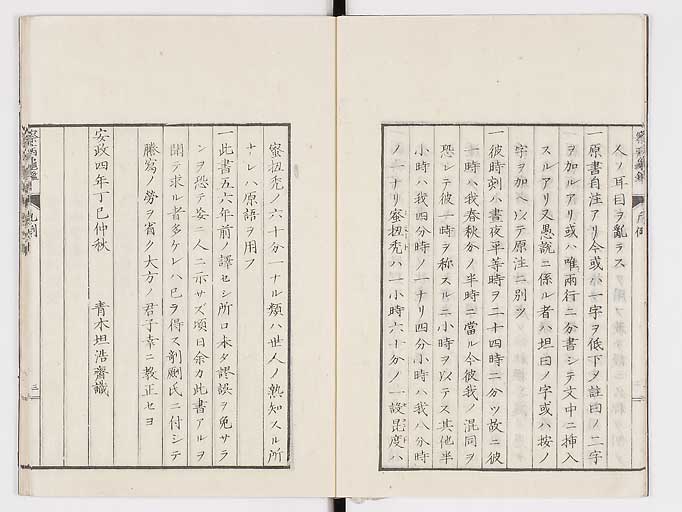 人ノ耳目ヲ亂ラス
一原書自注アリ今或ハ一字ヲ低下シ註曰ノ二字
ヲ加ルアリ或ハ唯兩行ニ分書シテ文中ニ挿入
スルアリ又愚說ニ係ル者ハ坦曰ノ字或ハ按ノ
字ヲ加ヘ以テ原注ニ別ツ
一彼時刻ハ晝夜平等時ヲ二十四時ニ分ツ故ニ彼
一時ハ我春秋分ノ半時ニ當ル今彼我ノ混同ヲ
恐レテ彼一時ヲ称スルニ小時ヲ以テス其他半
小時ハ我四分時ノ一ナリ四分小時ハ我八分時
ノ一ナリ蜜扭禿ハ一小時六十分ノ一設昆度ハ
蜜扭禿ノ六十分一ナル類ハ世人ノ熟知スル所
ナレハ原語ヲ用フ
一此書五六年前ノ譯セシ所ロ未タ謬誤ヲ免サラ
ンヲ恐テ妄ニ人ニ示サズ頃日余カ此書アルヲ
聞テ求ル者多ケレハ已ヲ得ス剞劂氏ニ付シテ
謄寫ノ勞ヲ省ク大方ノ君子幸ニ教正セヨ
安政四年丁巳仲秋　青木坦浩齋識
三